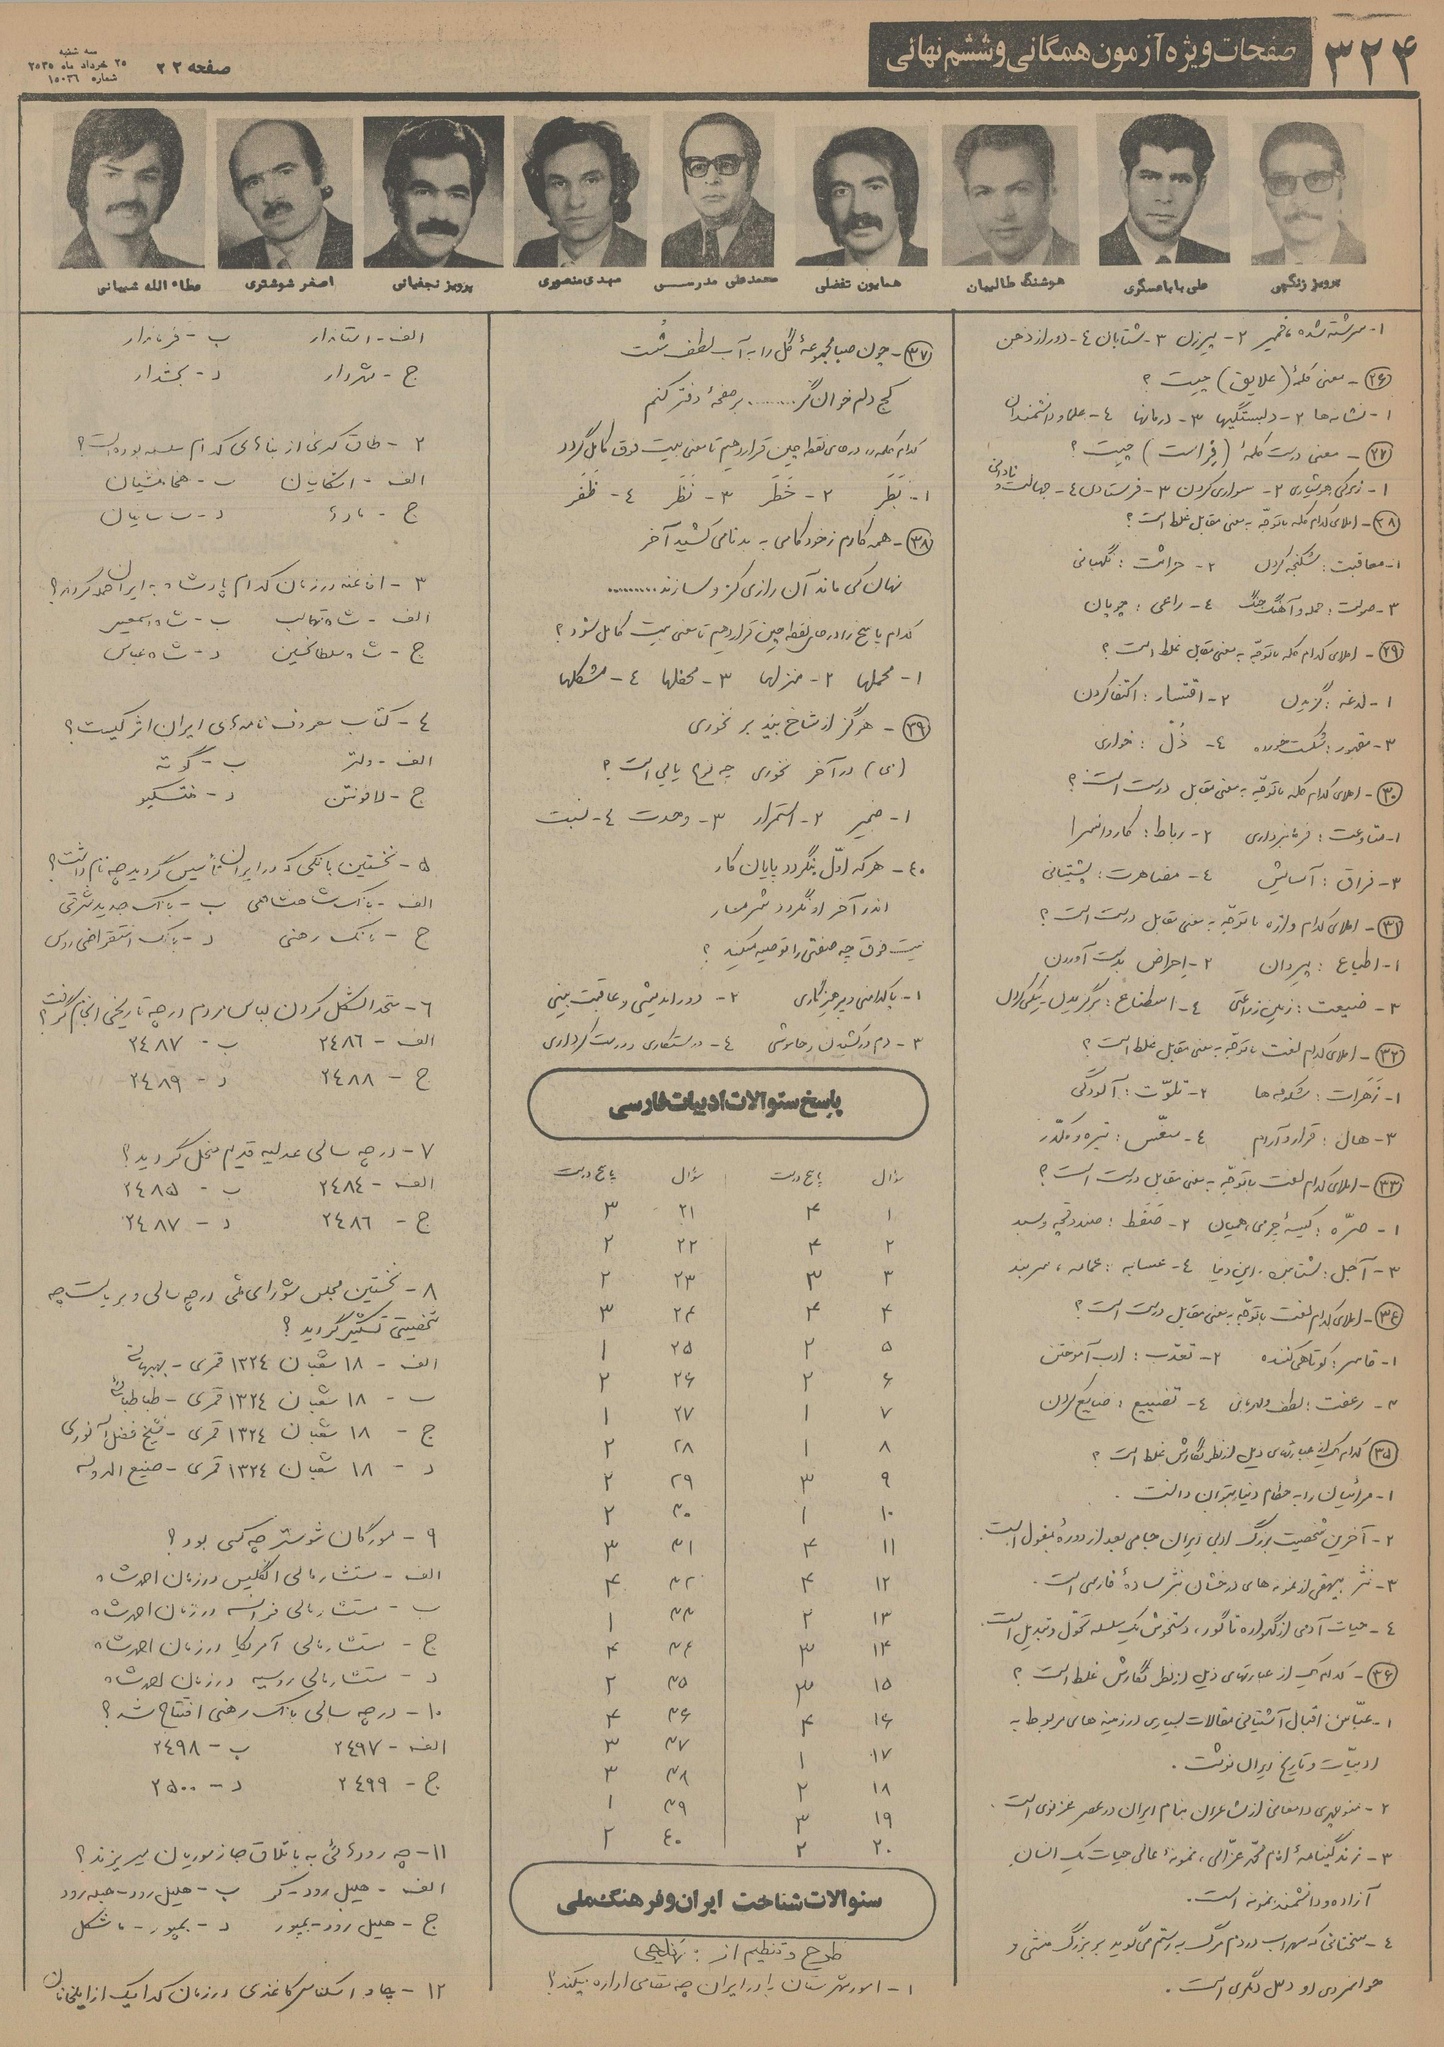 ۳۲۴
صفحات ویژه آزمون همگانی وششم نهائی
صفحه ۲۲
سه شنبه
۲۵ خرداد ماه ۲۵۳۵
شماره ۱۵۰۳۶
پرویز زنگچی
علی باباعسگری
هوشنگ طالبیان
همایون تفضلی
محمدعلی مدرسی
مهدی منصوری
پرویز نجفیانی
اصغر شوشتری
عطاء الله شیبانی
۱- سرشته شده، خمیر ۲- پیرزن ۳- شتابان ٤- دور از ذهن
۲۶ - معنی کلمهٔ (علایق) چیست ؟
۱- نشانه‌ها ۲- دلبستگیها ۳- درمانها ٤- علما و دانشمندان
۲۷ - معنی درست کلمهٔ (فِراست) چیست ؟
۱- زیرکی و هوشیاری ۲- سواری کردن ۳- فرستادن ٤- جهالت و نادانی
۲۸ - املای کدام کلمه با توجّه به معنی مقابل غلط است ؟
۱- معاقبت : شکنجه کردن ۲- حراثت : نگهبانی
۳- صولت : حمله و آهنگ جنگ ٤- راعی : چوپان
۲۹ - املای کدام کلمه با توجّه به معنی مقابل غلط است ؟
۱- لدغه : گزیدن ۲- اقتسار : اکتفا کردن
۳- مقهور : شکست خورده ٤- ذُلّ : خواری
۳۰ - املای کدام کلمه با توجّه به معنی مقابل درست است ؟
۱- متاوعت : فرمانبرداری ۲- رباط : کاروانسرا
۳- فراق : آسایش ٤- مضاهرت : پشتیبانی
۳۱ - املای کدام واژه با توجّه به معنی مقابل درست است ؟
۱- اطباع : پیروان ۲- اِحراض بدست آوردن
۳- ضیعت : زمین زراعتی ٤- اسطناع : برگزیدن - نیکی کردن
۳۲ - املای کدام لغت با توجّه به معنی مقابل غلط است ؟
۱- زَهَرات : شکوفه ها ۲- تلوّث : آلودگی
۳- هال : قرار و آرام ٤- مغّس : تیره و مکدّر
۳۳ - املای کدام لغت با توجّه به معنی مقابل درست است ؟
۱- صرّه : کیسهٔ چرمی، همیان ۲- صَفَط : صندوقچه و سبد
۳- آجل : شتابنده - این دنیا ٤- عسابه : عمامه ، سربند
۳٤ - املای کدام لغت با توجّه به معنی مقابل درست است ؟
۱- قاسر : کوتاهی کننده ۲- تعدّب : ادب آموختن
۳- رعفت : لطف و مهربانی ٤- تضییع : ضایع کردن
۳۵ کدام یک از عبارتهای ذیل از نظر نگارش غلط است ؟
۱- مرائیان را به حطام دنیا بتوان دانست .
۲- آخرین شخصیت بزرگ ادبی ایران جامی بعد از دورهٔ مغول است.
۳- نثر بیهقی از نمونه های درخشان نثر سادهٔ فارسی است .
٤- حیات آدمی از گهواره تا گور، دستخوش یک سلسله تحوّل و تبدیل است
۳۶ - کدام یک از عبارتهای ذیل از نظر نگارش غلط است ؟
۱- عبّاس اقبال آشتیانی مقالات بسیاری در زمینه های مربوط به
ادبیّات و تاریخ ایران نوشت .
۲- منوچهری دامغانی از شاعران بنام ایران در عصر غزنوی است .
۳- زندگینامهٔ امام محمّد غزّالی ، نمونهٔ عالی حیات یک انسان
آزاده و دانشمند نمونه است .
٤- سخنانی که سهراب در دم مرگ به رستم می گوید بر بزرگ منشی و
جوانمردی او دلیل دیگری است .
۳۷ - چون صبا مجموعهٔ گل را به آب لطف شُست
کج دلم خوان گر ........ بر صفحهٔ دفتر کنم
کدام کلمه را در جای نقطه چین قرار دهیم تا معنی بیت فوق کامل گردد
۱- بَطَر ۲- خَطَر ۳- نَظَر ٤- ظَفَر
۳۸ - همه کارم ز خود کامی به بدنامی کشید آخر
نهان کی ماند آن رازی کزو سازند ........
کدام پاسخ را در جای نقطه چین قرار دهیم تا معنی بیت کامل شود ؟
۱- محملها ۲- منزلها ۳- محفلها ٤- مشکلها
۳۹ - هرگز از شاخ بید بر نخوری
(ی) در آخر نخوری چه نوع یایی است ؟
۱- ضمیر ۲- استمرار ۳- وحدت ٤- نسبت
٤۰ - هر که اوّل بنگرد پایان کار
اندر آخر او نگردد شرمسار
بیت فوق چه صفتی را توصیه میکند ؟
۱- پاکدامنی و پرهیزگاری ۲- دوراندیشی و عاقبت بینی
۳- دم در کشیدن و خاموشی ٤- درستکاری و درست کرداری
پاسخ سئوالات ادبیات فارسی
سؤال پاسخ درست سؤال پاسخ درست
۱ ۴ ۲۱ ۳
۲ ۴ ۲۲ ۲
۳ ۳ ۲۳ ۲
۴ ۴ ۲۴ ۳
۵ ۲ ۲۵ ۱
۶ ۲ ۲۶ ۲
۷ ۱ ۲۷ ۱
۸ ۱ ۲۸ ۲
۹ ۳ ۲۹ ۲
۱۰ ۱ ۳۰ ۲
۱۱ ۴ ۳۱ ۳
۱۲ ۴ ۳۲ ۴
۱۳ ۲ ۳۳ ۱
۱۴ ۳ ۳۴ ۴
۱۵ ۳ ۳۵ ۲
۱۶ ۴ ۳۶ ۴
۱۷ ۱ ۳۷ ۳
۱۸ ۲ ۳۸ ۳
۱۹ ۳ ۳۹ ۱
۲۰ ۲ ٤۰ ۲
سئوالات شناخت ایران و فرهنگ ملی
طرح و تنظیم از : نهاچی
۱- امور شهرستان را در ایران چه مقامی اداره میکند ؟
الف - استاندار ب - فرماندار
ج - شهردار د - بخشدار
۲ - طاق کسری از بناهای کدام سلسله بوده است ؟
الف - اشکانیان ب - هخامنشیان
ج - ماد د - ساسانیان
۳ - افاغنه در زمان کدام پادشاه به ایران حمله کردند ؟
الف - شاه تهماسب ب - شاه اسمعیل
ج - شاه سلطانحسین د - شاه عباس
٤ - کتاب معروف نامه‌های ایران اثر کیست ؟
الف - ولتر ب - گوته
ج - لافونتن د - منتسکیو
۵ - نخستین بانکی که در ایران تأسیس گردید چه نام داشت ؟
الف - بانک شاهنشاهی ب - بانک جدید شرقی
ج - بانک رهنی د - بانک استقراضی روس
۶ - متحدالشکل کردن لباس مردم در چه تاریخی انجام گرفت ؟
الف - ۲٤۸۶ ب - ۲٤۸۷
ج - ۲٤۸۸ د - ۲٤۸۹
۷ - در چه سالی عدلیه قدیم منحل گردید ؟
الف - ۲٤۸٤ ب - ۲٤۸۵
ج - ۲٤۸۶ د - ۲٤۸۷
۸ - نخستین مجلس شورای ملی در چه سالی و بریاست چه
شخصیتی تشکیل گردید ؟
الف - ۱۸ شعبان ۱۳۲٤ قمری - بهبهانی
ب - ۱۸ شعبان ۱۳۲٤ قمری - طباطبائی
ج - ۱۸ شعبان ۱۳۲٤ قمری - شیخ فضل اله نوری
د - ۱۸ شعبان ۱۳۲٤ قمری - صنیع الدوله
۹ - مورگان شوستر چه کسی بود ؟
الف - مستشار مالی انگلیس در زمان احمدشاه
ب - مستشار مالی فرانسه در زمان احمدشاه
ج - مستشار مالی آمریکا در زمان احمدشاه
د - مستشار مالی روسیه در زمان احمدشاه
۱۰ - در چه سالی بانک رهنی افتتاح شد ؟
الف - ۲٤۹۷ ب - ۲٤۹۸
ج - ۲٤۹۹ د - ۲۵۰۰
۱۱ - چه رودهائی به باتلاق جازموریان میریزند ؟
الف - هلیل رود - کر ب - هلیل رود - حبله رود
ج - هلیل رود - بمپور د - بمپور - ماشکل
۱۲ - چاو ، اسکناس کاغذی در زمان کدامیک از ایلخانان